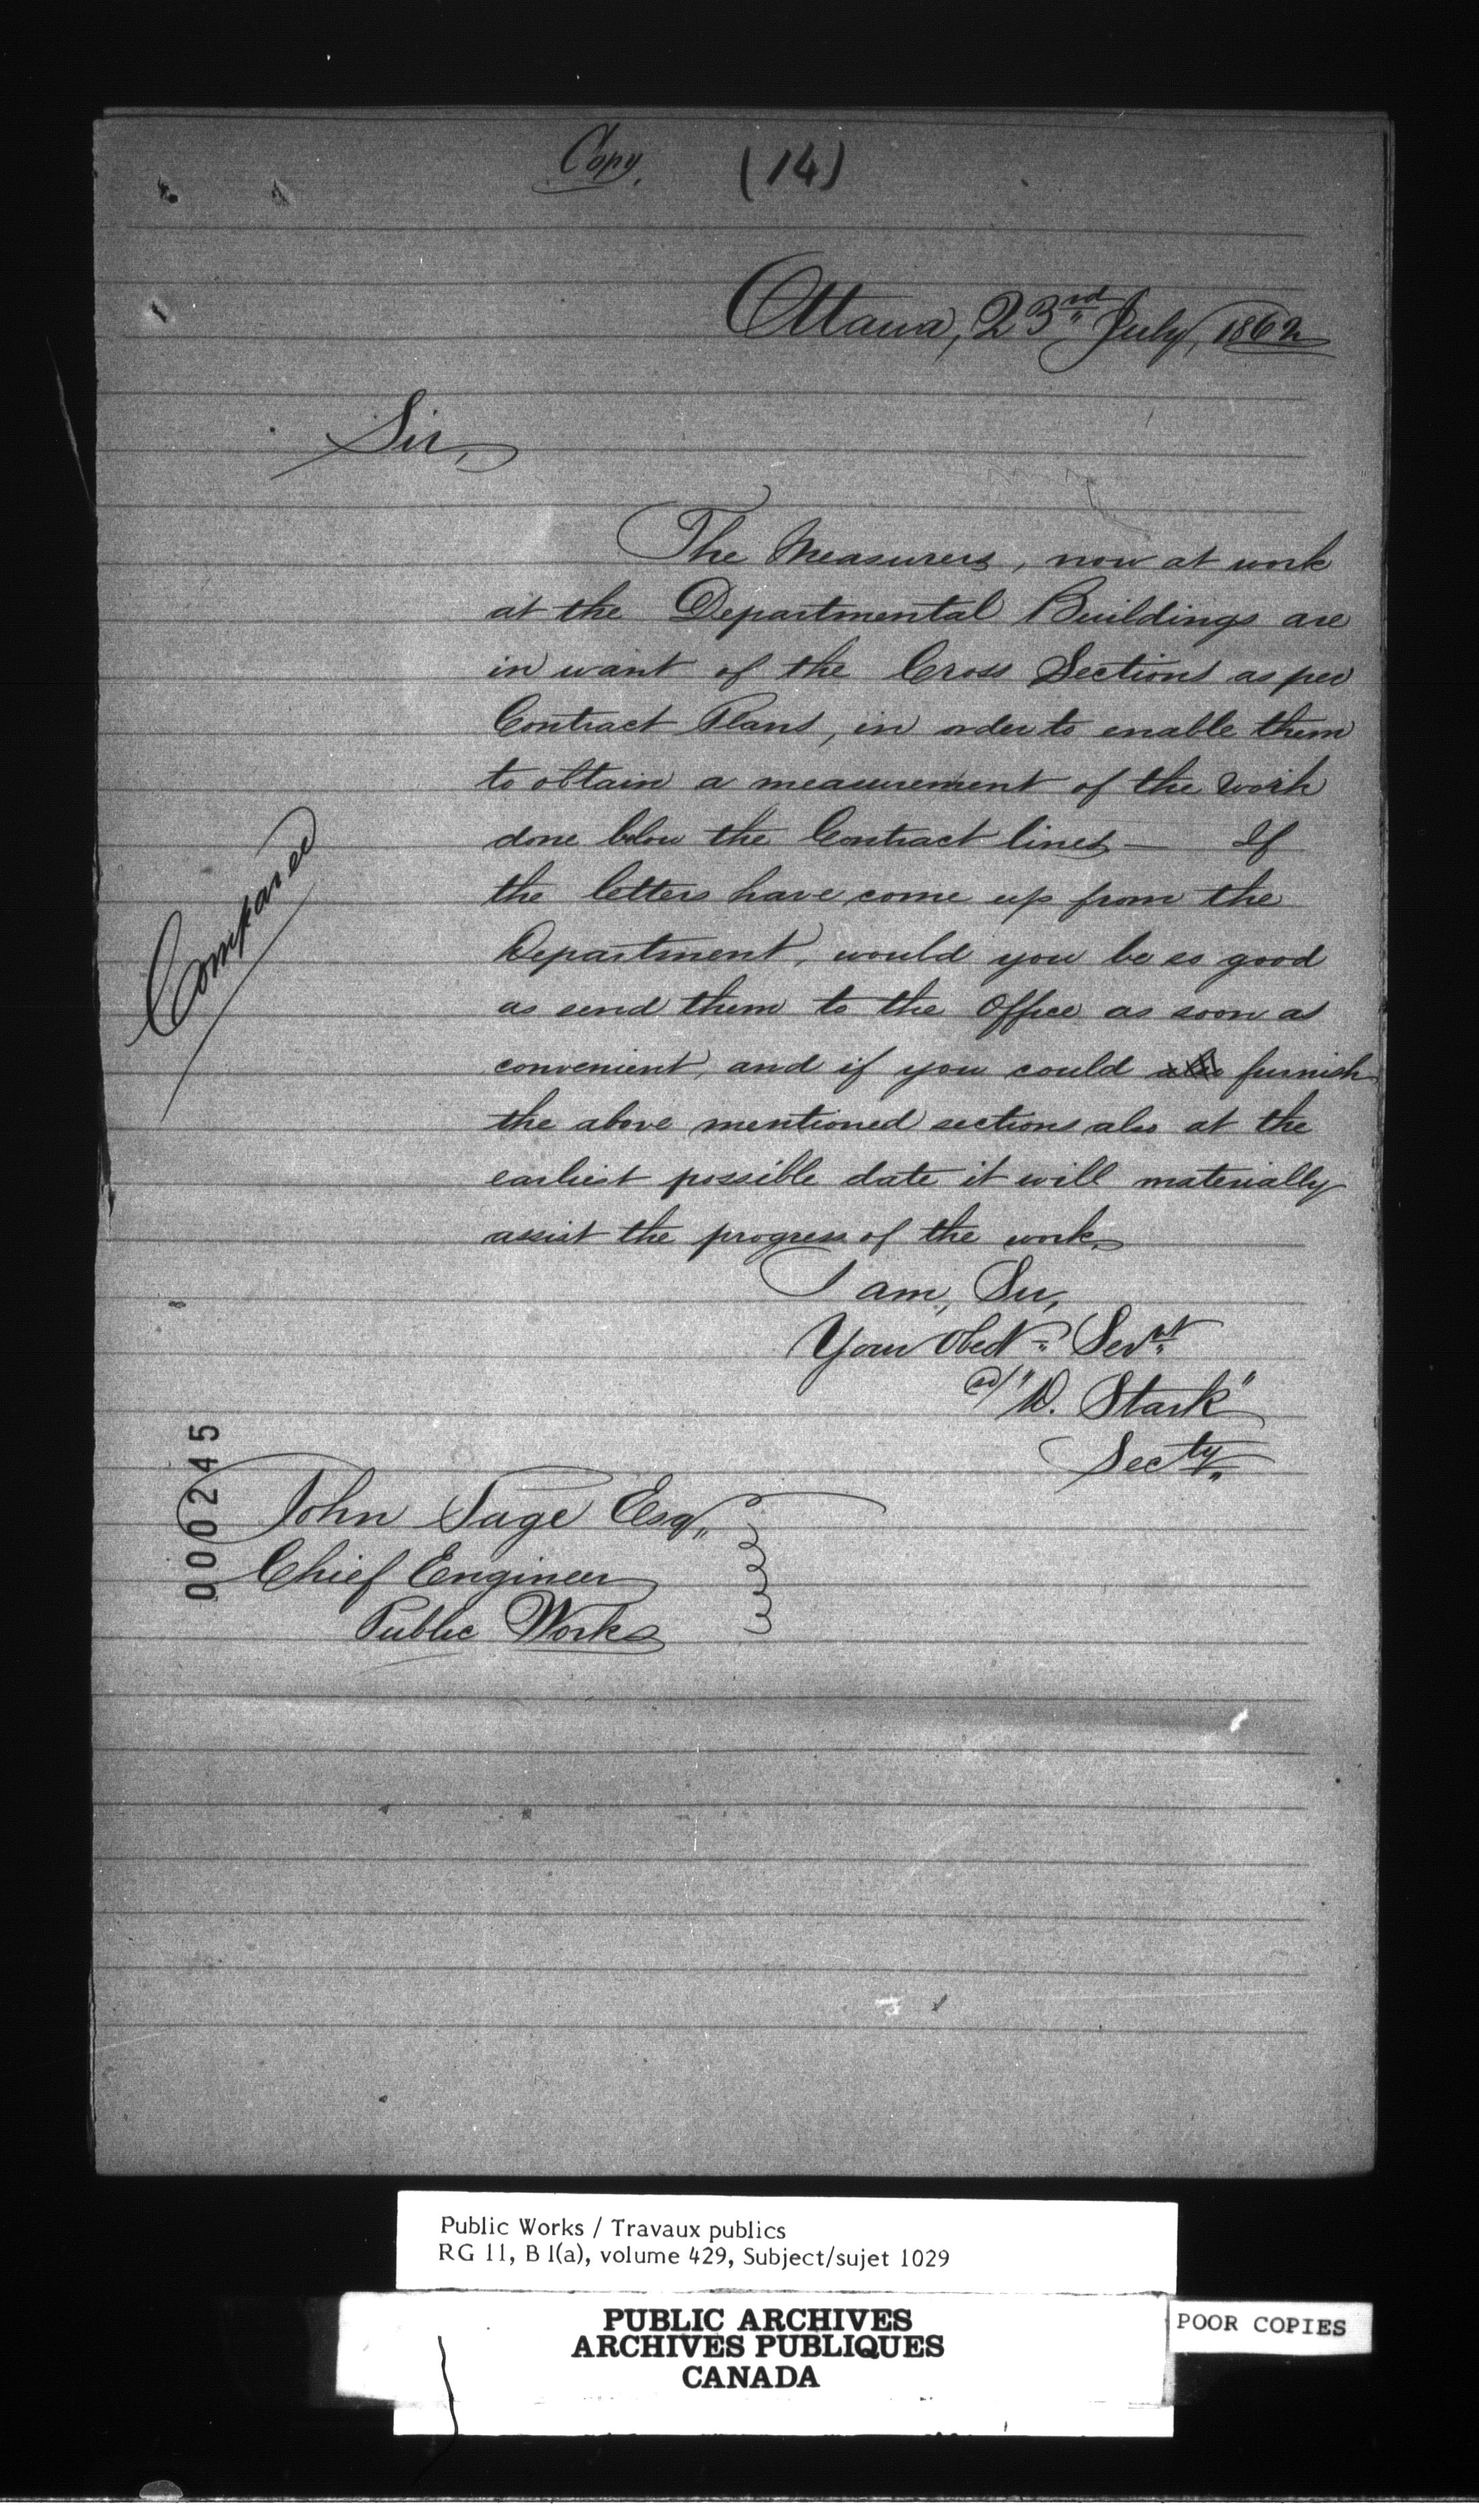 Copy. (14)
Ottawa, 23rd July, 1862
Sir,
The Measurers, now at work
at the Departmental Buildings are
in want of the Cross Sections as per
Contract Plans, in order to enable them
to obtain a measurement of the work
done below the Contract lines — If
the letters have come up from the
Department, would you be so good
as send them to the Office as soon as
convenient, and if you could also furnish
the above mentioned sections also at the
earliest possible date it will materially
assist the progress of the work.
I am, Sir,
Your Obedt Servt
"D. Stark"
Secty
John Page Esq.,
Chief Engineer
Public Works
Compared
000245
Public Works / Travaux publics
RG 11, B 1(a), volume 429, Subject/sujet 1029
PUBLIC ARCHIVES
ARCHIVES PUBLIQUES
CANADA
POOR COPIES